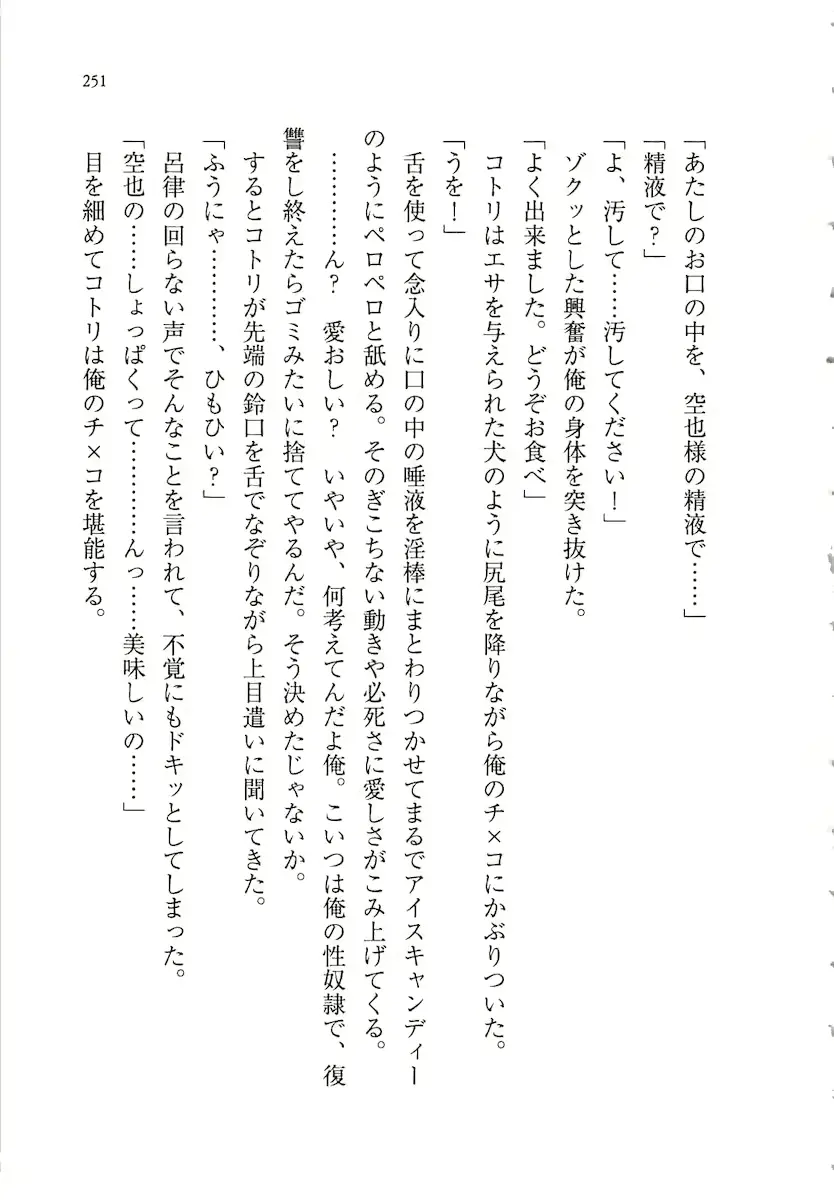 251
「あたしのお口の中を、空也様の精液で……」
「精液で？」
「よ、汚して……汚してください！」
ゾクッとした興奮が俺の身体を突き抜けた。
「よく出来ました。どうぞお食べ」
コトリはエサを与えられた犬のように尻尾を降りながら俺のチ×コにかぶりついた。
「うを！」
舌を使って念入りに口の中の唾液を淫棒にまとわりつかせてまるでアイスキャンディー
のようにペロペロと舐める。そのぎこちない動きや必死さに愛しさがこみ上げてくる。
…………ん？　愛おしい？　いやいや、何考えてんだよ俺。こいつは俺の性奴隷で、復
讐をし終えたらゴミみたいに捨ててやるんだ。そう決めたじゃないか。
するとコトリが先端の鈴口を舌でなぞりながら上目遣いに聞いてきた。
「ふうにゃ…………、ひもひい？」
呂律の回らない声でそんなことを言われて、不覚にもドキッとしてしまった。
「空也の……しょっぱくって…………んっ……美味しいの……」
目を細めてコトリは俺のチ×コを堪能する。